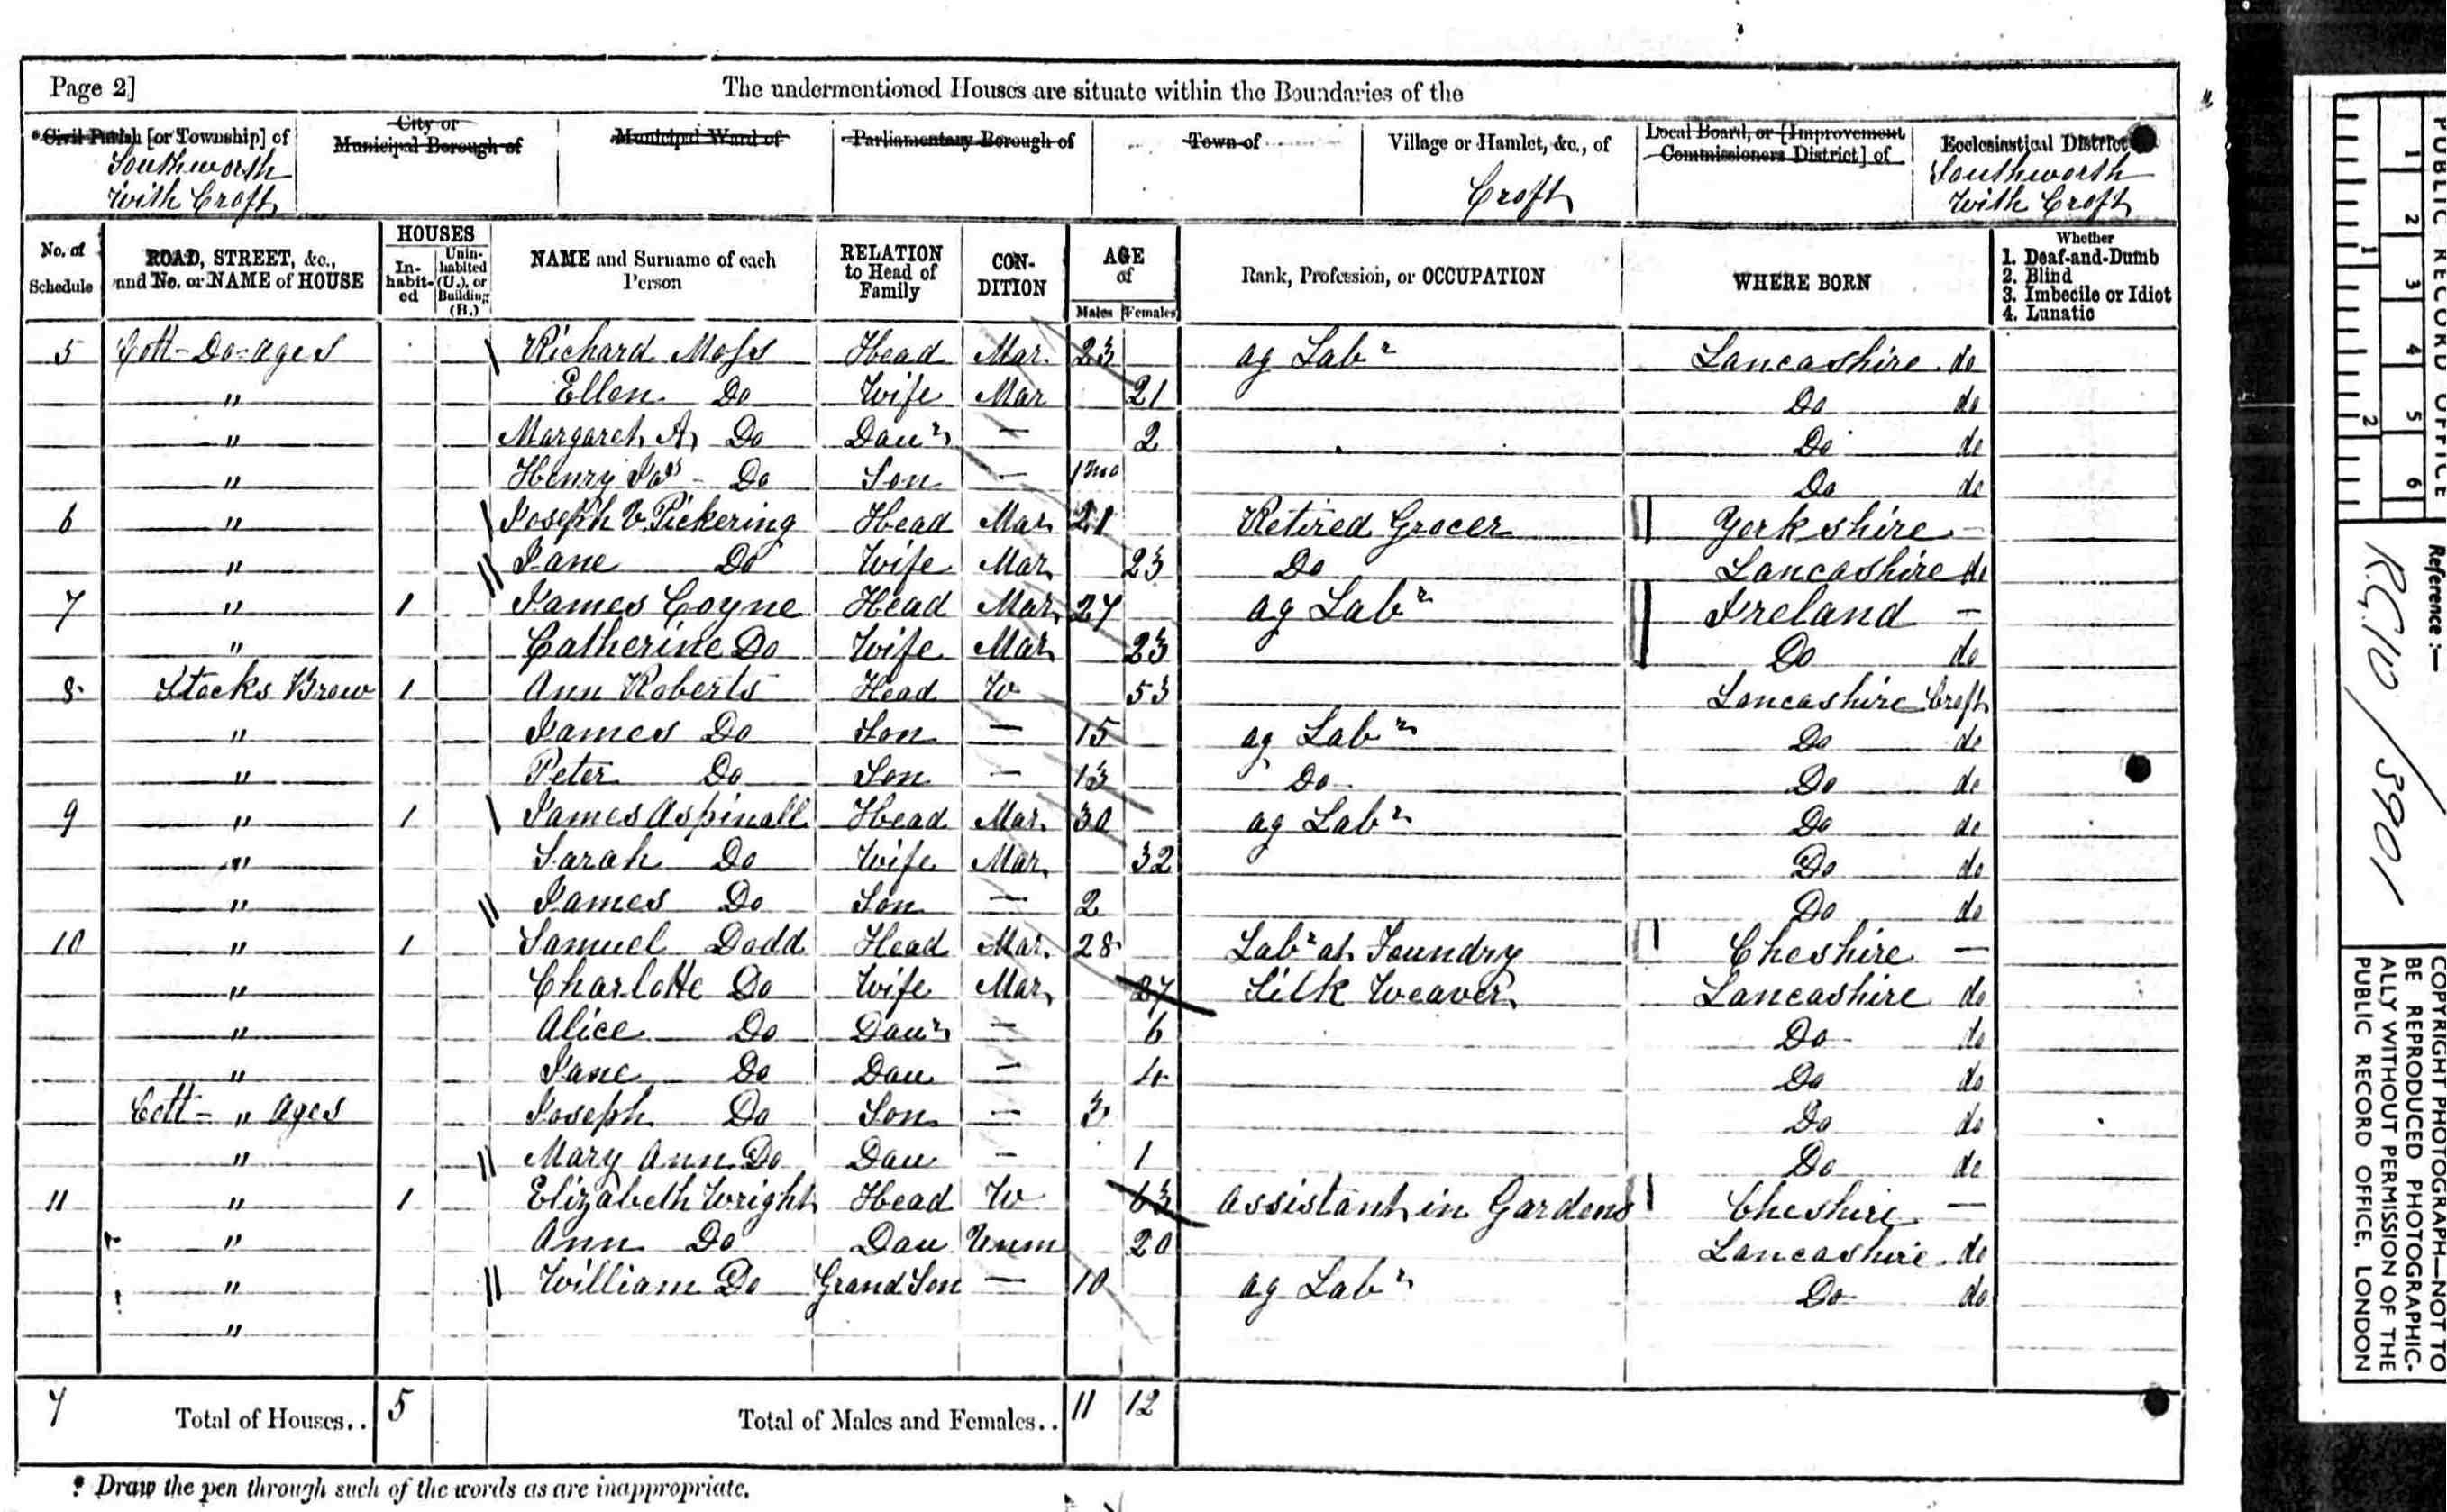 Page 2]
The undermentioned Houses are situate within the Boundaries of the
*Civil Parish [or Township] of
Southworth
With Croft
City or
Municipal Borough of
Municipal Ward of
Parliamentary Borough of
Town of
Village or Hamlet, &c., of
Croft
Local Board, or [Improvement
Commissioners District] of
Ecclesiastical District
Southworth
With Croft
No. of
Schedule
ROAD, STREET, &c.,
and No. or NAME of HOUSE
HOUSES
In-
habit-
ed
Unin-
habited
(U.), or
Building
(B.)
NAME and Surname of each
Person
RELATION
to Head of
Family
CON-
DITION
AGE
of
Males Females
Rank, Profession, or OCCUPATION
WHERE BORN
Whether
1. Deaf-and-Dumb
2. Blind
3. Imbecile or Idiot
4. Lunatic
5 Cott-Do-ages Richard Moss Head Mar. 23 ag Labr Lancashire do
" Ellen Do Wife Mar 21 Do do
" Margaret A, Do Daur — 2 Do do
" Henry Jas - Do Son — 1mo Do do
6 " Joseph V. Pickering Head Mar 21 Retired Grocer Yorkshire —
" Jane Do Wife Mar 23 Do Lancashire do
7 " 1 James Coyne Head Mar 27 ag Labr Ireland —
" Catherine Do Wife Mar 23 Do do
8 Stocks Brow 1 Ann Roberts Head W 53 Lancashire Croft
" James Do Son — 15 ag Labr Do do
" Peter Do Son — 13 Do Do do
9 " 1 James Aspinall Head Mar. 30 ag Labr Do do
" Sarah Do Wife Mar. 32 Do do
" James Do Son — 2 Do do
10 " 1 Samuel Dodd Head Mar. 28 Labr at Foundry Cheshire —
" Charlotte Do Wife Mar 27 Silk Weaver Lancashire do
" Alice Do Daur — 6 Do do
" Jane Do Dau — 4 Do do
Cott- " ages Joseph Do Son — 3 Do do
" Mary Ann Do Dau — 1 Do do
11 " 1 Elizabeth Wright Head W 63 Assistant in Gardens Cheshire —
" Ann Do Dau Unm 20 Lancashire do
" William Do Grand Son — 10 ag Labr Do do
"
7 Total of Houses.. 5 Total of Males and Females.. 11 12
* Draw the pen through such of the words as are inappropriate.
PUBLIC RECORD OFFICE
1 2 3 4 5 6
1 2
Reference :—
R.G. 10 / 3901
COPYRIGHT PHOTOGRAPH—NOT TO
BE REPRODUCED PHOTOGRAPHIC-
ALLY WITHOUT PERMISSION OF THE
PUBLIC RECORD OFFICE, LONDON